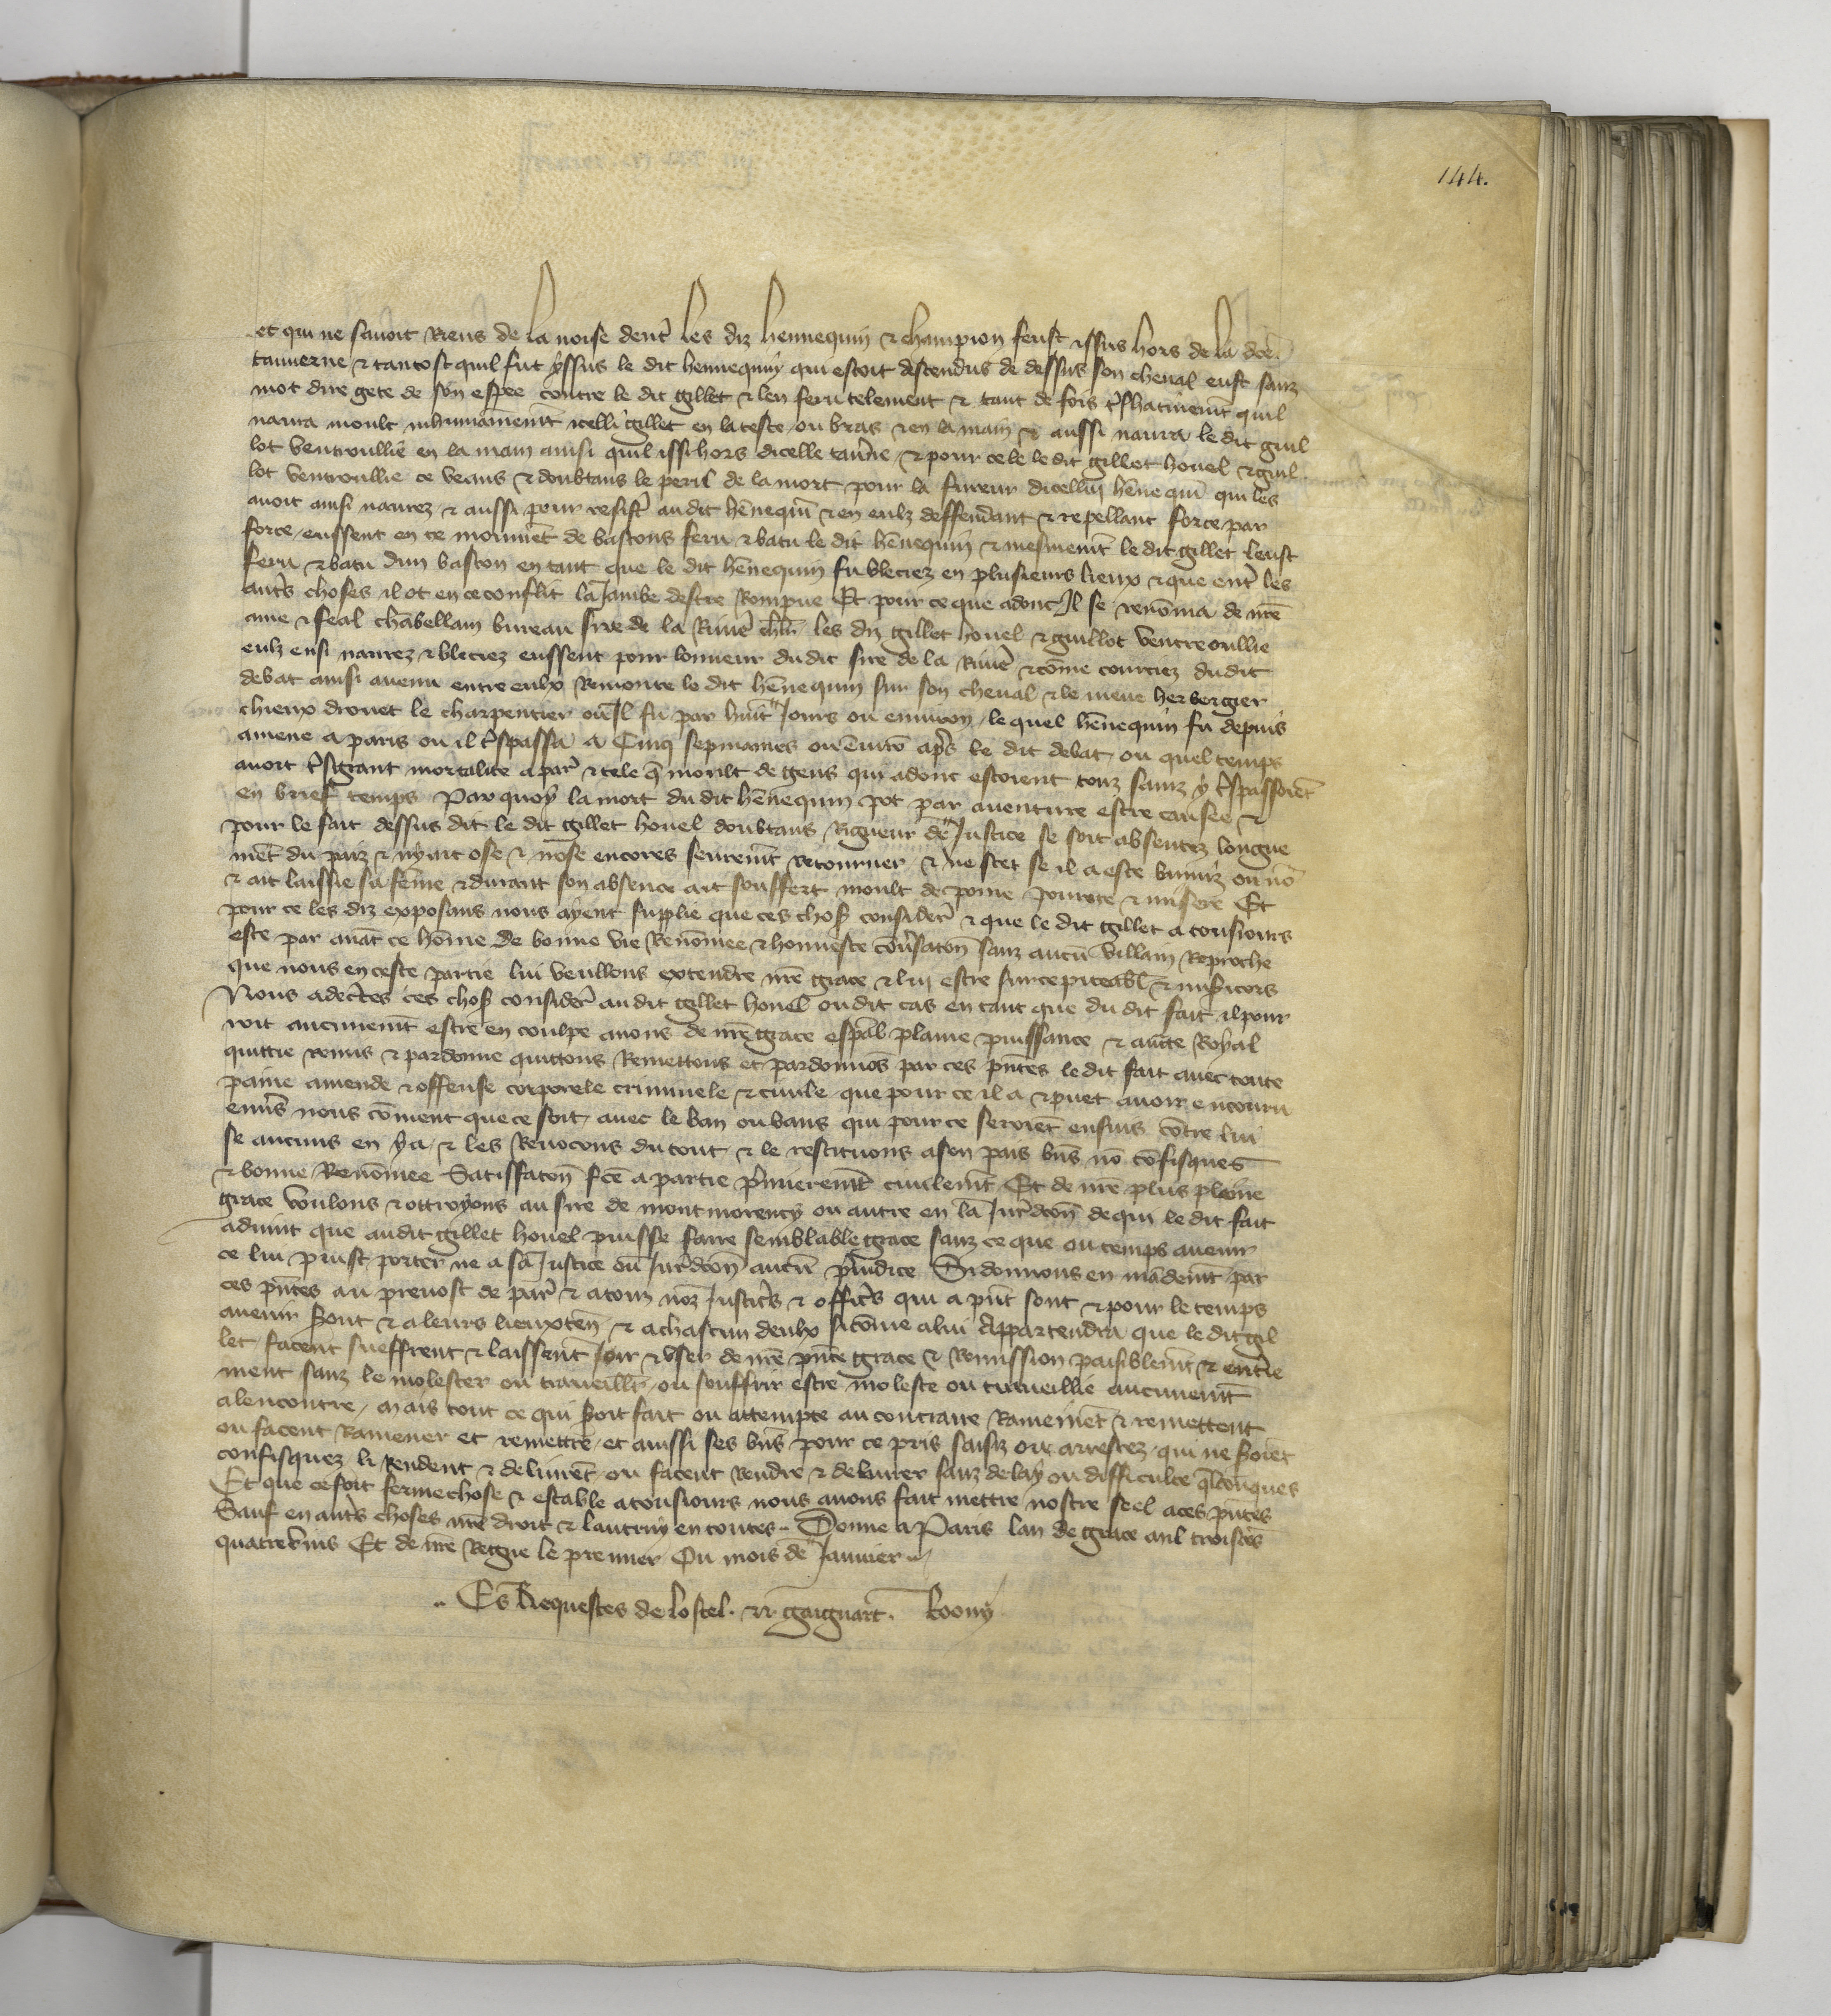 144.
et qui ne savoit Riens de la noise dentr̄ les diz hennequin & champion feust issus hors de la dc̄e
tauuerne & tantost quil fut yssus le dit hennequin qui estoit descendus de dessus son cheual eust sanz
mot dire gete de son espee contre le dit gillet & len feru telement & tant de fois qͥl
naura moult inhumainemēt icelli gillet en la teste ou bras & en la main & aussi naura le dit guil
lot ventroullie en la main ainsi quil issi hors dicelle tau̾ne & pour ce le dit gillot houel & guil
lot ventroullie ce veans & doubtans le peril de la mort pour la fureur dicellui hēnequī qui les
auoit ainsi naurez & aussi pour resist̾ au dit hēnequī & en eulz deffendant & repellant force par
force eussent en ce mouuemēt de bastons feru & batu le dit hēnequin & mesmemēt le dit gillet leust
feru & batu dun baston en tant que le dit hēnequin fu bleciez en plusieurs lieux & que entr̄ les
autr̄s choses il ot en ce conflit la Jambe destre Rompue Et pour ce que adonc Il se renōma de nr̄e
ame & feal chābellam bureau sire de la Riuie̾ les diz gillet houel & guillot ventreoullie
eulz ensi naurez & bleciez eussent pour lonneur du dit sire de la Riuie̾ & cōme courciez du dit
debat ainsi auenu entre eulx Remonte le dit hēnequin sur son cheual & le mene herbergier
chieux drouet le charpentier ou Il fu par huit Jours ou enuiron le quel hēnequin fu depuis
amene a paris ou il tr̄spassa a Cinq sepmaines ou ēuirō apr̄s le dit debat ou quel temps
auoit tr̄sgrant mortalite a par̾ & tele q̄ moult de gens qui adonc estoient touz sains y tr̄spassoiēt
en brief temps Par quoy la mort du dit hēnequin pot par auenture estre causee &
pour le fait dessus dit le dit gillet houel doubtans Rigueur de Justice se soit absentez longue
mēt du paiz & ny ait ose & nose encores seuremēt retourner & ne scet se il a este banniz ou nō
& ait laissie sa fēme & durant son absence ait souffert moult de poine pourete & misere Et
pour ce les diz exposans nous ayent supplie que ces choß considere̾ & que le dit gillet a tousiours
este par auāt ce hōme de bonne vie Renōmee & honneste cōu̾sacōn sanz aucū villain Reproche
que nous en ceste partie lui veullons extendre nr̄e grace & lui estre sur ce piteabl̄ & miß̾icors
Nous adecr̄tes ces choß considere̾ au dit gillet houel ou dit cas en tant que du dit fait il pour
roit aucunemēt estre en coulpe auons de nr̄e grace esp̄al plaine puissance & auct̄e Royal
quittie remis & pardonne quittons Remettons et pardonnōs par ces pn̄tes le dit fait auec toute
paine amende & offense corporele criminele & ciuile que pour ce il a & puet auoir encouru
enu̾s nous cōment que ce soit auec le ban ou bans qui pour ce seroiēt ensuis cōtre lui
se aucuns en y a & les Reuocons du tout & le restituons a son pais bn̄s nō cōfisques
& bonne Renōmee Satisfacōn fc̄e a partie p̾mieremēt ciuilemēt Et de nr̄e plus plaine
grace voulons & ottroyons au sire de montmorency ou autre en la Jur̄dcōn de qui le dit fait
aduint que audit gillet houel puisse faire semblable grace sanz ce que ou temps auenir
ce lui puist porter ne a sa Justice ou Jur̄dcōn aucū p̾iudice Si donnons en mādemēt par
ces pn̄tes au preuost de par̾ & a touz noz Justic̄s & offic̄s qui a pn̄t sont & pour le temps
auenir ßont & a leurs lieuxten̄ & a chascun deulx si cōme a lui Appartendra que le dit gil
let facent sueffrent & laissent Joir & vser de nr̄e pn̄te grace & Remission paisiblemēt & entie̾
ment sanz le molester ou traueillier ou souffrir estre moleste ou traueillie aucunemēt
alencontre mais tout ce qui ßoit fait ou attempte au contraire Ramainēt & remettent
ou facent Ramener et remettre et aussi ses bn̄s pour ce pris saisiz ou arrestez qui ne ßoiēt
confisquez li Rendent & deliurēt ou facent Rendre & deliurer sanz delay ou difficulte q̄lconques
Et que ce soit ferme chose & estable a tousiours nous auons fait mettre nostre seel a ces pn̄tes
Sauf en autr̄s choses nr̄e droit & lautruy en toutes Donne a Paris lan de grace mil troiscēs
quatrevīns Et de nr̄e Regne le premier Ou mois de Januier
Es Requestes de lostel.